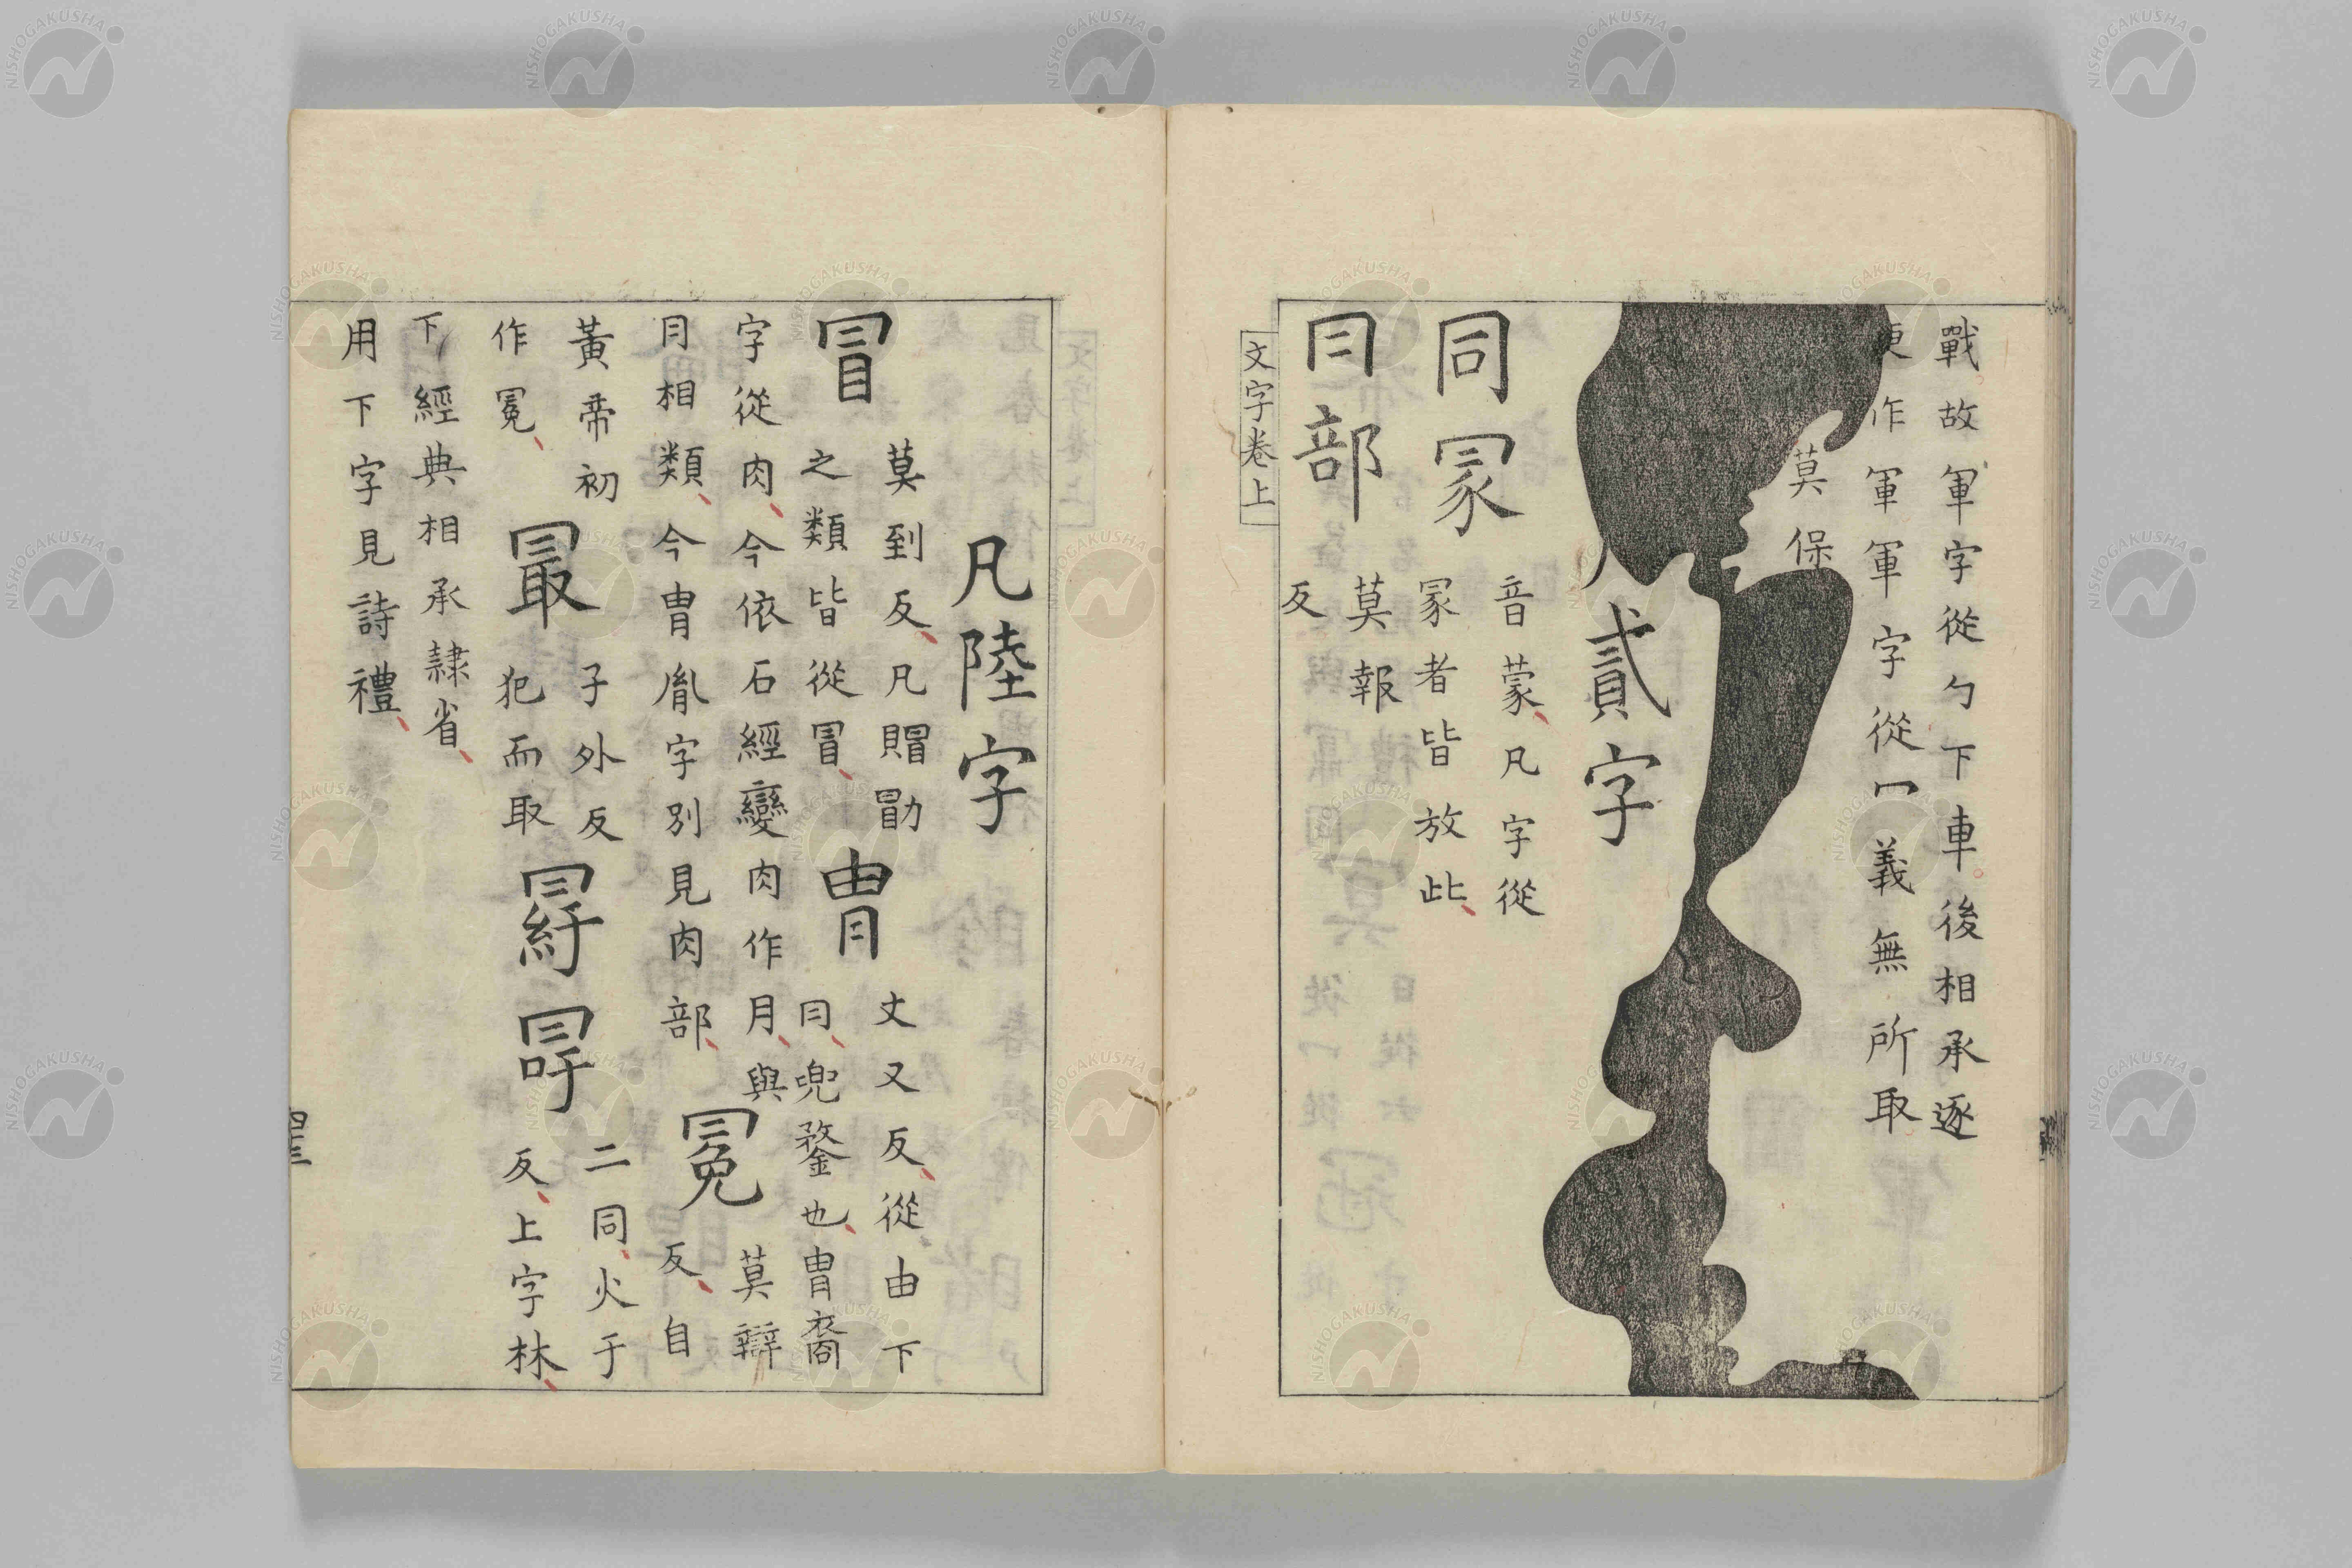 戰故軍字從勹下車後相承逐
更作軍軍字從冖義無所取
莫保
貳字
同冡
音蒙凡字從
冡者皆放此
冃部
莫報
反
文字卷上
凡陸字
冒
莫到反凡賵勖
之類皆從冒
冑
丈又反從由下
冃兜鍪也冑裔
字從肉今依石經變肉作月與
冃相類今冑胤字別見肉部
冕
莫辯
反自
黃帝初
作冕
冣
子外反
犯而取
二同火于
反上字林
下經典相承隷省
用下字見詩禮
NISHOGAKUSHA